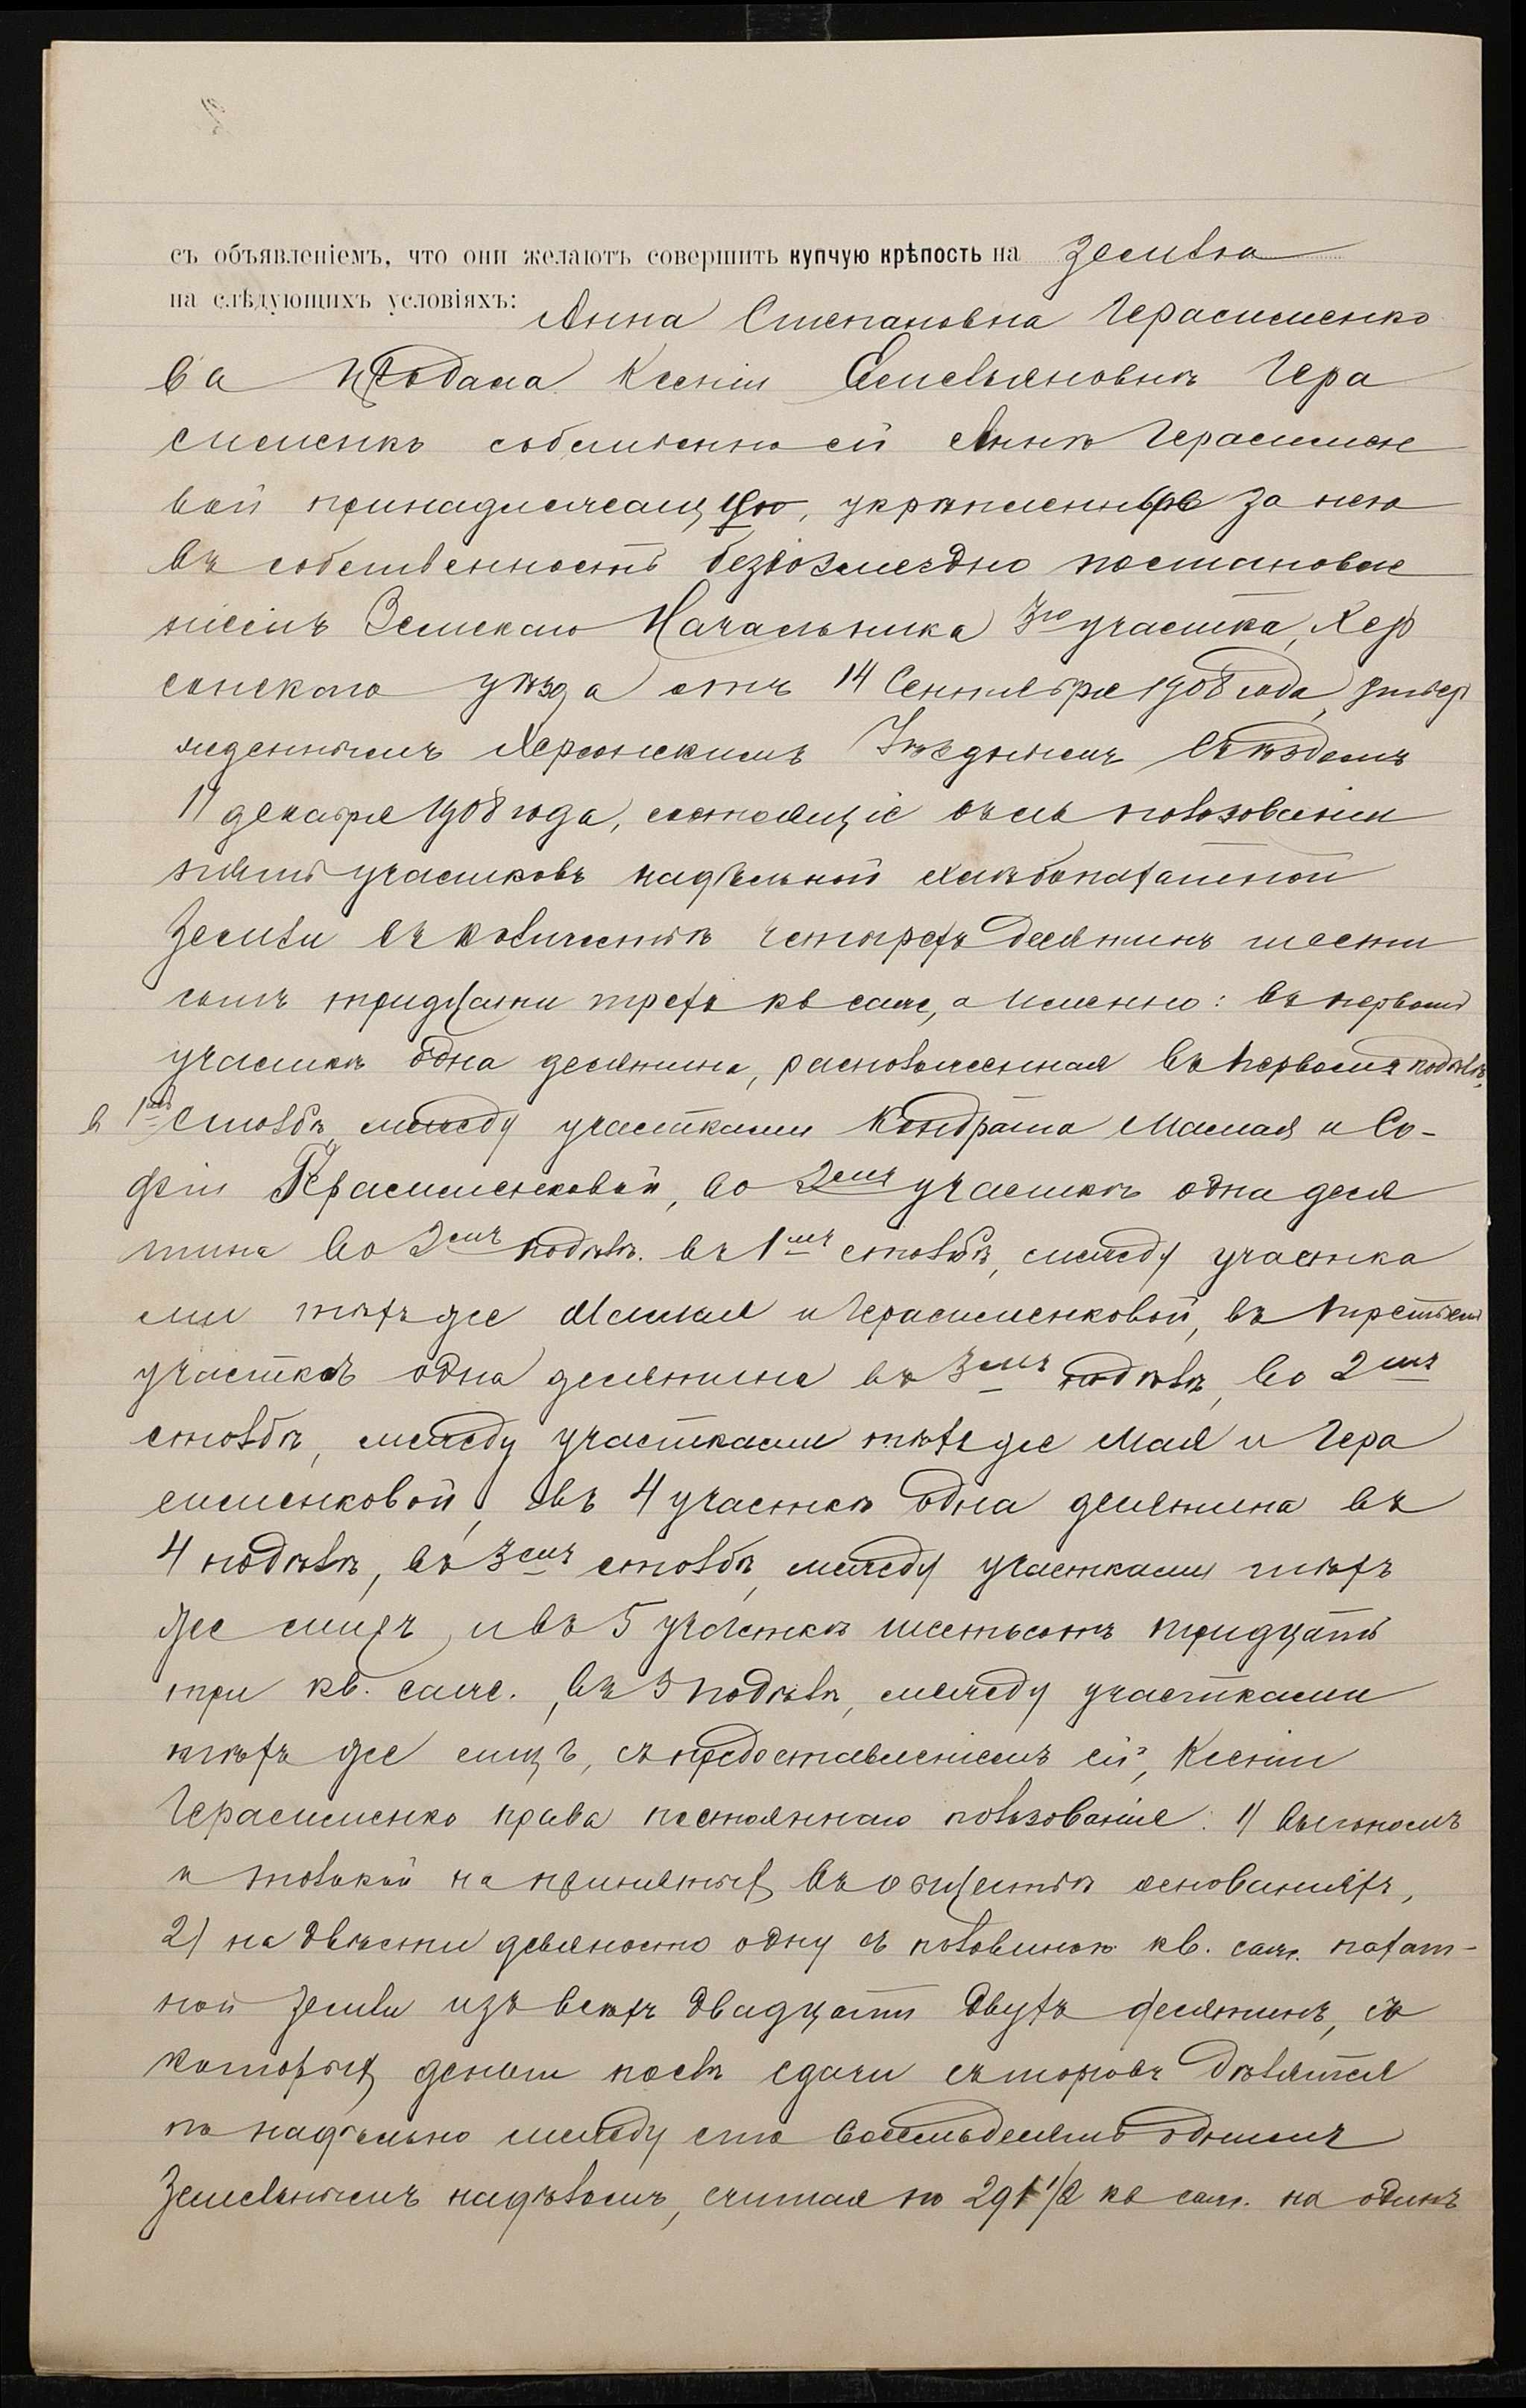 съ объявленіемъ, что они желаютъ совершить купчую крѣпость на землю
на слѣдующихъ условіяхъ: Анна Степановна Герасименко
ва продала Ксеніи Емельяновнѣ Гера
сименкъ собственно ей Аннѣ Герасимен
вой принадлежащую, укрѣпленные за нею
въ собственность безвозмездно постановле
ніемъ Земскаго Начальника 3го участка, Хер
сонскаго уѣзда отъ 14 Сентября 1908 года, утвер
жденнымъ Херсонскимъ Уѣзднымъ Съѣздомъ
11 декабря 1908 года, состоящіе въ ея пользованіи
пять участковъ надѣльной хлѣбопахатной
земли въ количествѣ четырехъ десятинъ шести
сотъ тридцати трехъ кв саж, а именно: въ первомъ
участкѣ одна десятина, расположенная въ первомъ подѣлѣ,
в 1мъ столбѣ, между участками Кондрата Мамая и Со-
фіи Герасименковой, во 2мъ участкѣ одна деся
тина во 2мъ подѣлѣ. въ 1мъ столбѣ, между участка
ми тѣхъ же Мамая и Герасименковой, въ третьемъ
участкѣ одна десятина въ 3мъ подѣлѣ, во 2мъ
столбѣ, между участками тѣхъ же Мая и Гера
сименковой, въ 4 участкѣ одна десятина въ
4 подѣлѣ, въ 3мъ столбѣ, между участками тѣхъ
же лицъ, и въ 5 участкѣ шестьсотъ тридцать
три кв. саж., въ 5 подѣлѣ, между участками
тѣхъ же лицъ, съ предоставленіемъ ей, Ксеніи
Герасименко права постояннаго пользованія: 1) выгономъ
и толокой на принятыхъ въ обществѣ основаніяхъ,
2) на двѣсти девяносто одну съ половиною кв. саж. пахат-
ной земли изъ всѣхъ двадцати двухъ десятинъ, съ
которыхъ деньги послѣ сдачи съ торговъ дѣлятся
по надѣльно между сто восемьдесятъ однимъ
земельнымъ надѣломъ, считая по 291 1/2 кв саж. на одинъ